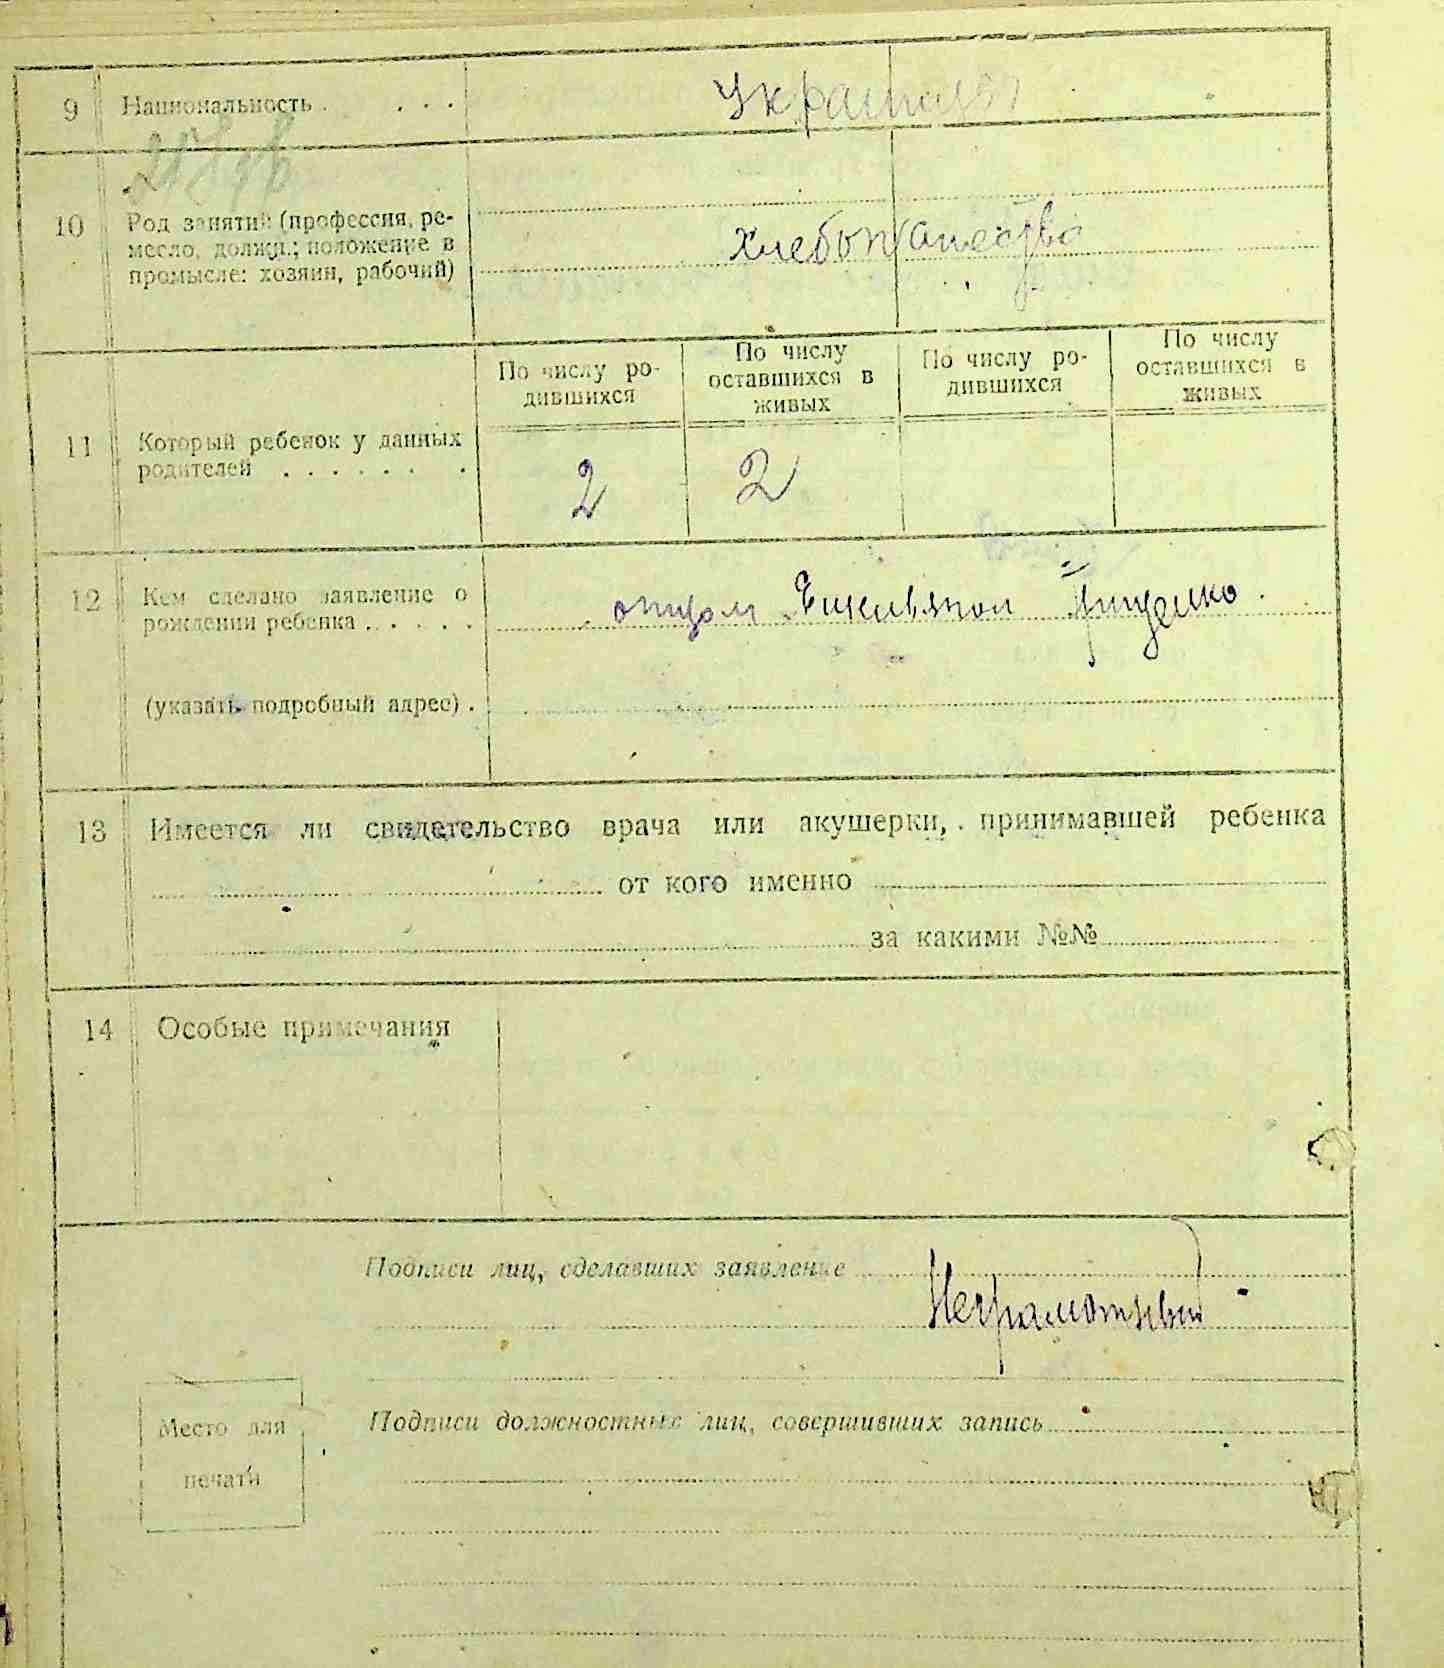 9 Национальность . . . .
10 Род занятий (профессия, ре-
месло, должн.; положение в
промысле: хозяин, рабочий)
хлебопашество
11 Который ребенок у данных
родителей . . . . . . .
По числу ро-
дившихся
По числу
оставшихся в
живых
По числу ро-
дившихся
По числу
оставшихся в
живых
2 2
12 Кем сделано заявление о
рождении ребенка . . . . .
отцом Грищенко
(указать подробный адрес) .
13 Имеется ли свидетельство врача или акушерки, принимавшей ребенка
от кого именно
за какими №№
14 Особые примечания
Подписи лиц, сделавших заявление
Неграмотный
Место для
печати
Подписи должностных лиц, совершивших запись